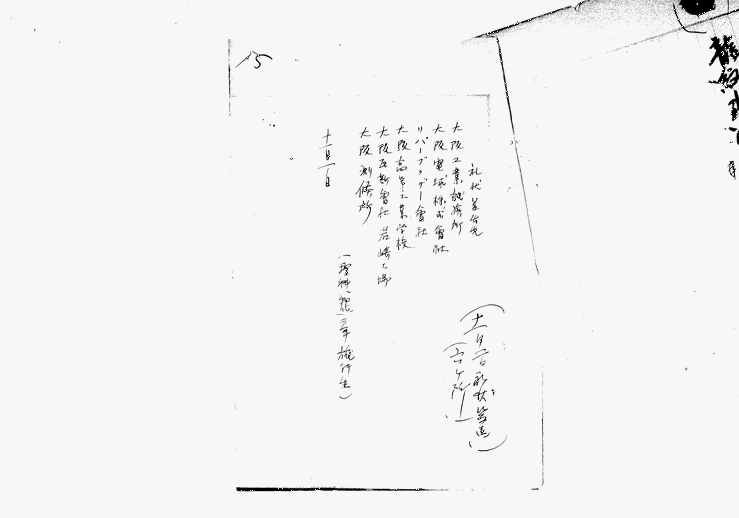 15
礼状差出先
大阪工業試験所
大阪電球株式會社
リバーブラザー會社
大阪高等工業学校
大阪瓦斯會社岩崎工場
大阪測候所
(理科三年旅行生)
十一月一日
(十一月二日礼状差出
(六ヶ所)